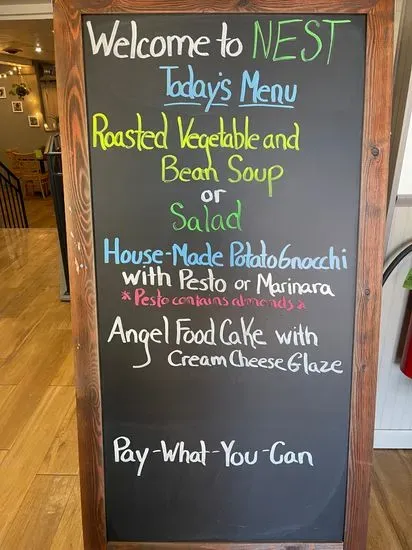 Welcome to NEST
Today's Menu
Roasted Vegetable and
Bean Soup
or
Salad
House-Made Potato Gnocchi
with Pesto or Marinara
*Pesto contains almonds*
Angel Food Cake with
Cream Cheese Glaze
Pay-What-You-Can